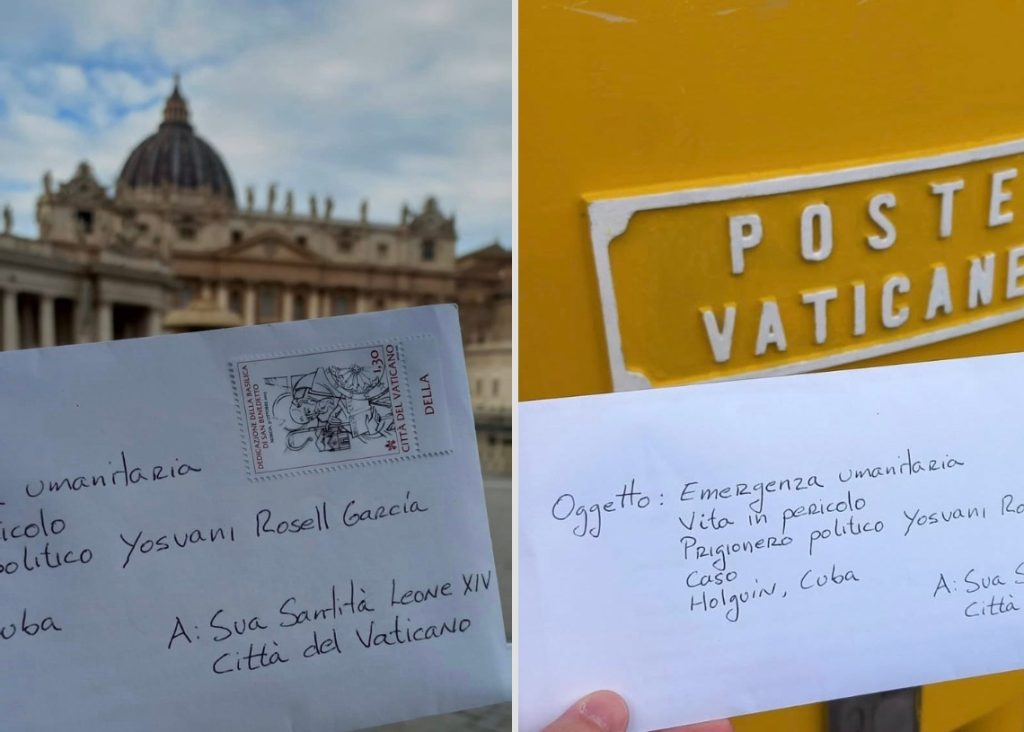 DEDICAZIONE DELLA BASILICA
DI SAN BENEDETTO
1,30
CITTÀ DEL VATICANO
DELLA
a umanitaria
icolo
olitico Yosvani Rosell García
uba
A: Sua Santità Leone XIV
Città del Vaticano
POSTE
VATICANE
Oggetto: Emergenza umanitaria
Vita in pericolo
Prigionero politico Yosvani Ro
Caso
Holguin, Cuba
A: Sua S
Città